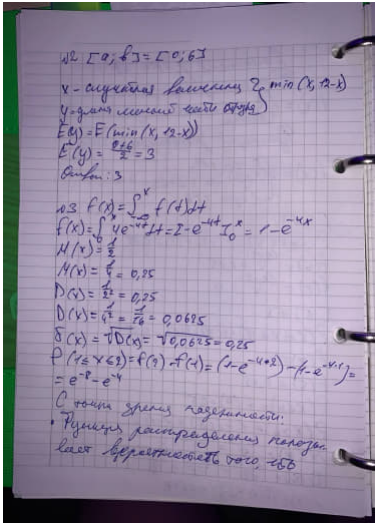 №2 [a; b] = [0; 6]
x - случайная величина min(x, 12-x)
y - длина меньшей части
E(y) = E(min(x, 12-x))
E(y) = \frac{0+6}{2} = 3
Ответ: 3
№3 f(x) = ∫ f(t)dt
f(x) = ∫ 4e^{-4t}dt = [-e^{-4t}]_0^x = 1-e^{-4x}
M(x) = \frac{1}{λ}
M(x) = \frac{1}{4} = 0,25
D(x) = \frac{1}{λ^2} = 0,25
D(x) = \frac{1}{4^2} = \frac{1}{16} = 0,0625
б(x) = √D(x) = √0,0625 = 0,25
P(1≤x≤2) = f(2)-f(1) = (1-e^{-4*2})-(1-e^{-4·1}) =
= e^{-8}-e^{-4}
С точки зрения надежности:
• Функция распределения показы-
вает вероятность того, что